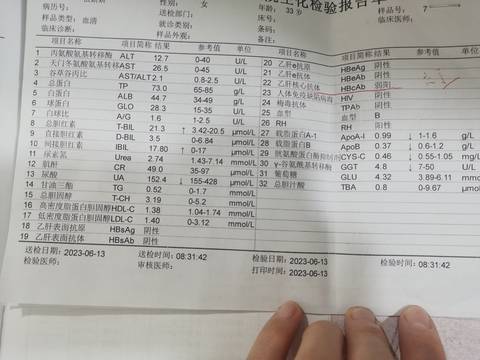 性别: 女
生化检验报告单
病历号:
年龄: 33岁
样品号: 7
样品类型: 血清
送检部门:
床号:
临床医师:
临床诊断:
就诊类别:
条码:
样品外观:
备注:
项目名称 项目简称 结果 参考值 单位
1 丙氨酸氨基转移酶 ALT 12.7 0-40 U/L
2 天门冬氨酸氨基转移 AST 26.5 0-45 U/L
3 谷草谷丙比 AST/ALT 2.1 0.8-2.5 U/L
4 总蛋白 TP 73.0 65-85 g/L
5 白蛋白 ALB 44.7 34-49 g/L
6 球蛋白 GLO 28.3 15-35 U/L
7 白球比 A/G 1.6 1-2.5 U/L
8 总胆红素 T-BIL 21.3 ↑ 3.42-20.5 μmol/L
9 直接胆红素 D-BIL 3.5 0-6.84 μmol/L
10 间接胆红素 IBIL 17.80 ↑ 0-17 μmol/L
11 尿素氮 Urea 2.74 1.43-7.14 mmol/L
12 肌酐 CR 49.0 35-97 μmol/L
13 尿酸 UA 152.4 ↓ 155-428 μmol/L
14 甘油三酯 TG 0.52 0-1.7 mmol/L
15 总胆固醇 T-CH 3.19 0-5.2 mmol/L
16 高密度脂蛋白胆固醇 HDL-C 1.38 1.04-1.74 mmol/L
17 低密度脂蛋白胆固醇 LDL-C 1.40 0-3.12 mmol/L
18 乙肝表面抗原 HBsAg 阴性
19 乙肝表面抗体 HBsAb 阴性
项目名称 项目简称 结果 参考值 单位
20 乙肝e抗原 HBeAg 阴性
21 乙肝e抗体 HBeAb 阴性
22 乙肝核心抗体 HBcAb 弱阳
23 人体免疫缺陷病毒 HIV 阴性
24 梅毒抗体 TPAb 阴性
25 血型 血型 B
26 RH RH 阳性
27 载脂蛋白A-1 ApoA-I 0.99 ↓ 1-1.6 g/L
28 载脂蛋白B ApoB 0.37 ↓ 0.6-1.2 g/L
29 胱氨酸蛋白酶抑制剂 CYS-C 0.46 ↓ 0.55-1.05 mg/L
30 γ-谷氨酰基转移酶 GGT 4.8 ↓ 7-50 U/L
31 葡萄糖 GLU 4.32 3.89-6.11 mmol/L
32 总胆汁酸 TBA 0.8 0-9.67 μmol/L
送检日期: 2023-06-13
送检时间: 08:31:42
检验日期: 2023-06-13
检验时间: 08:31:42
检验医师:
审核医师:
打印时间: 2023-06-13